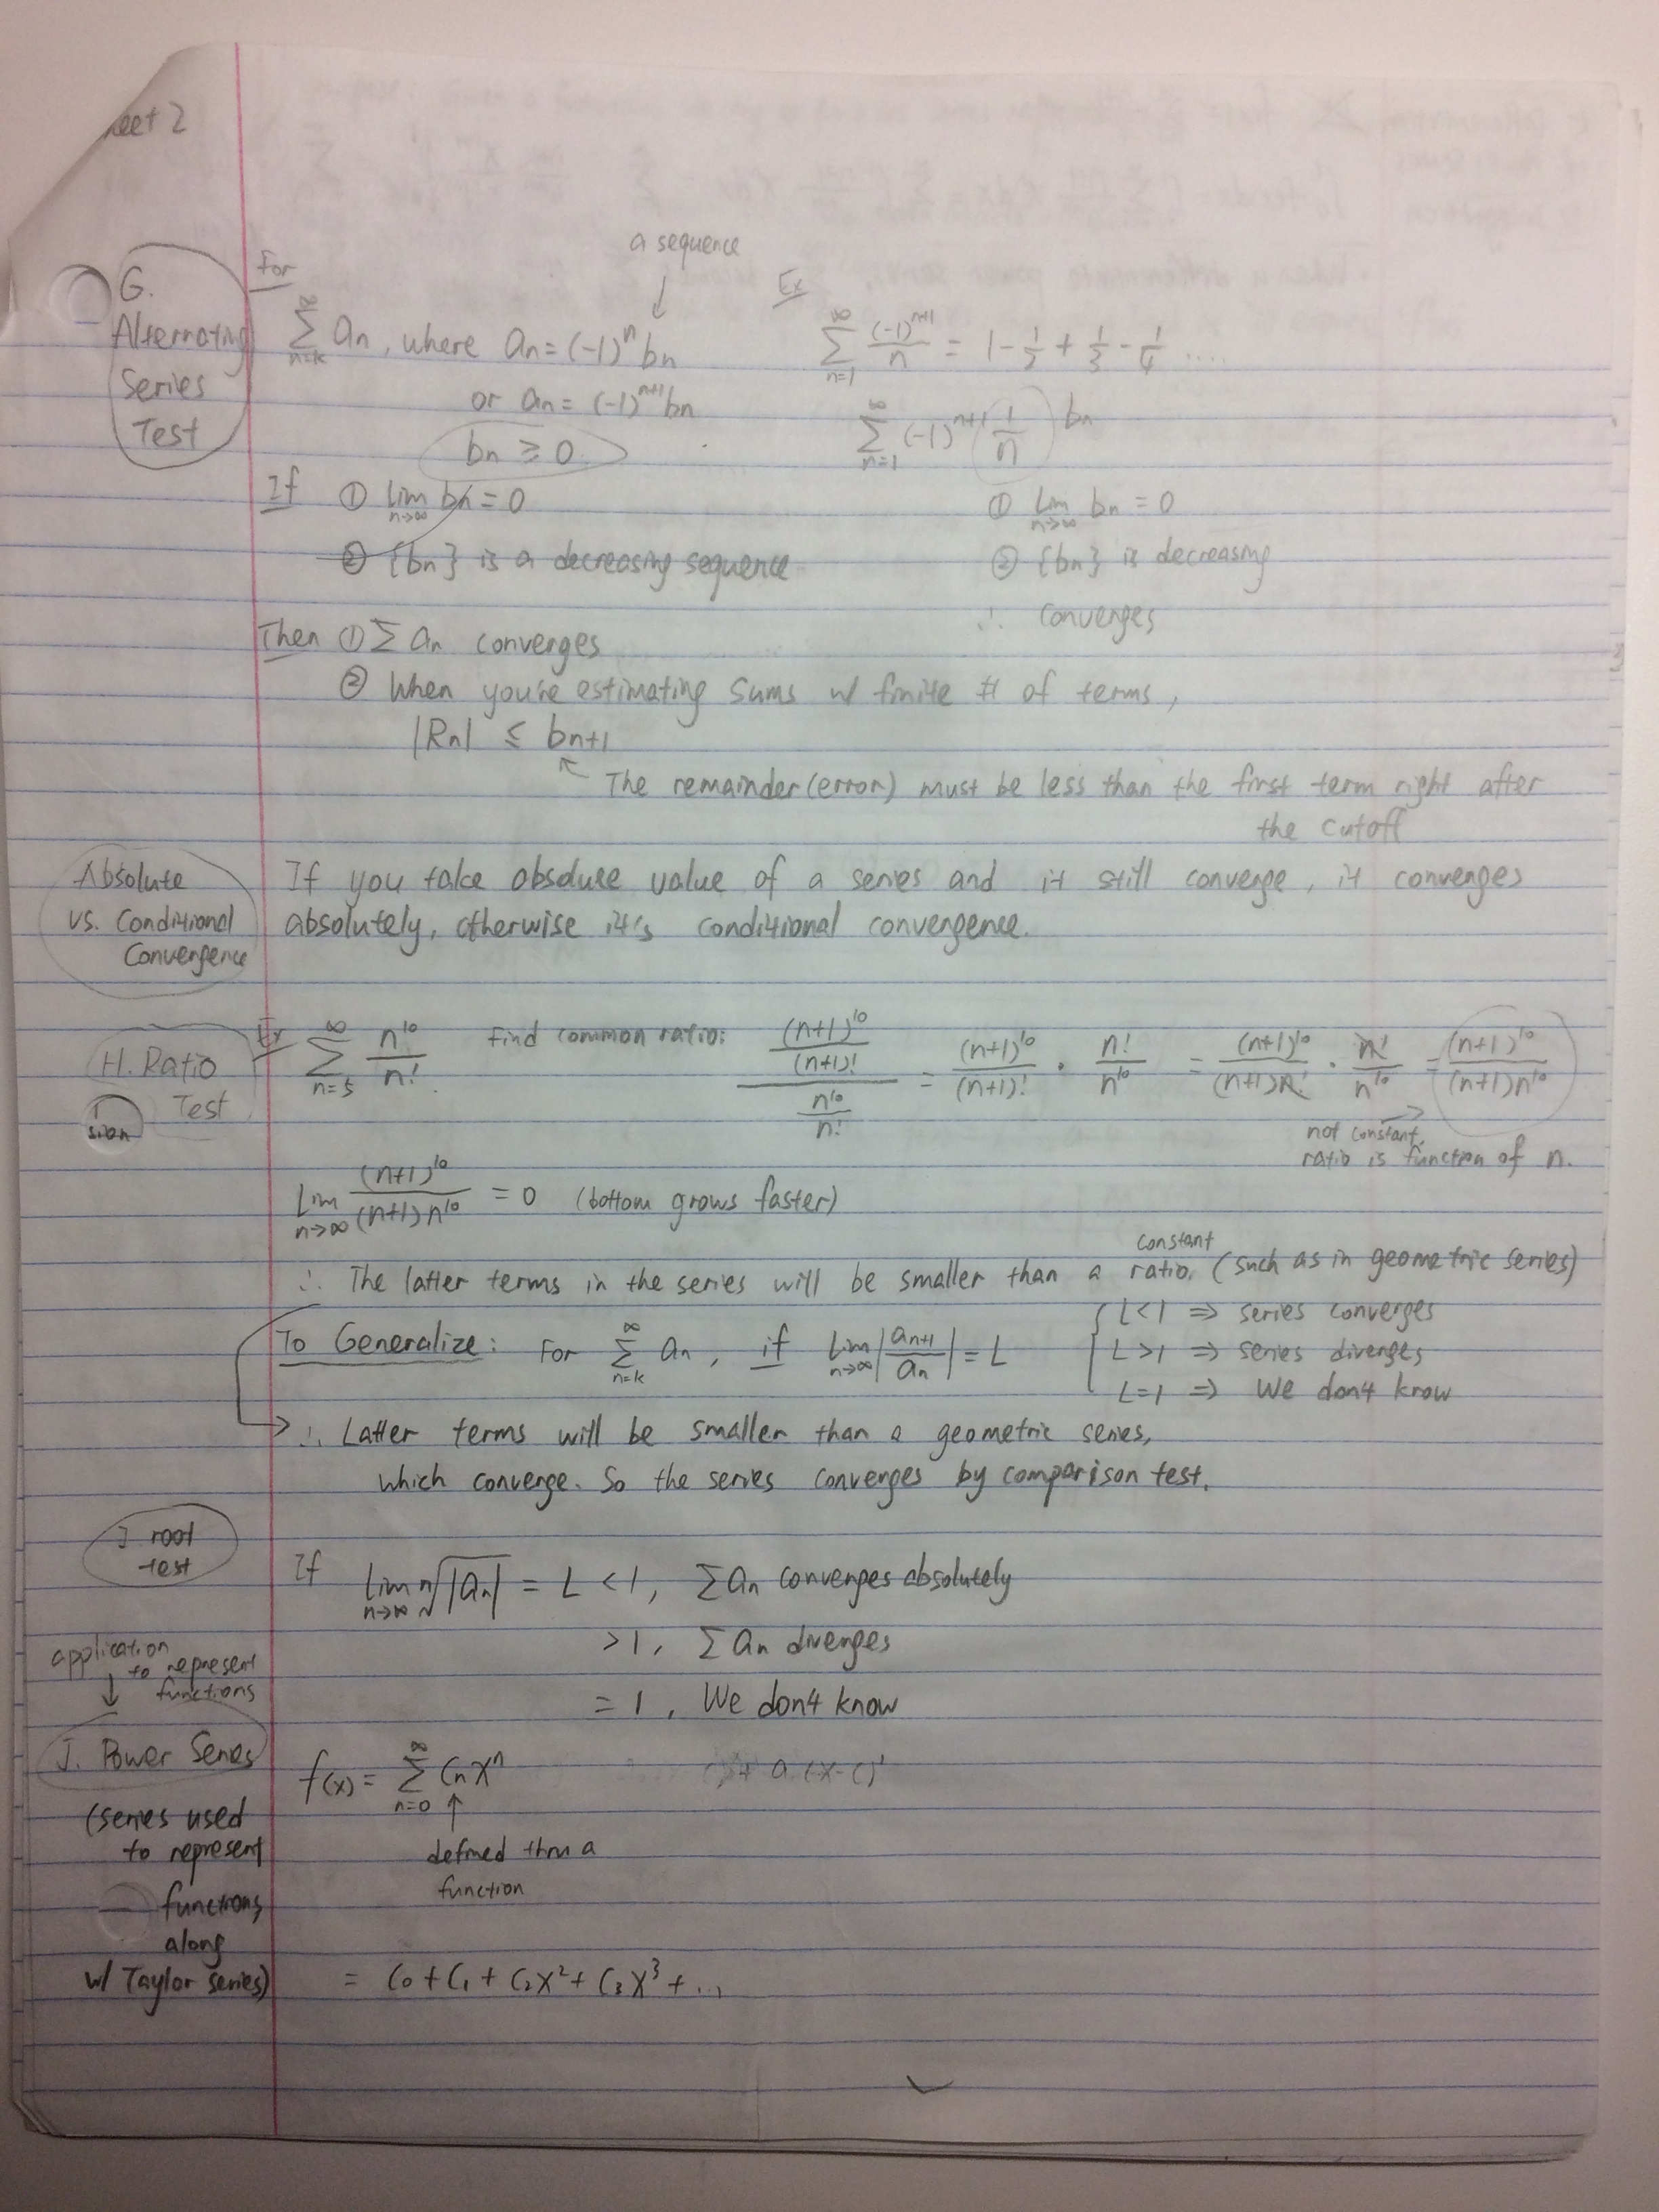 eet 2
G.
Alternating
Series
Test
For
a sequence
↓
∞∑n=k an, where an = (-1)^n bn
or an = (-1)^(n+1) bn
bn ≥ 0
Ex
∞∑n=1 (-1)^(n+1)/n = 1 - 1/2 + 1/3 - 1/4 ....
∞∑n=1 (-1)^(n+1) (1/n) bn
If ① lim n→∞ bn = 0
② {bn} is a decreasing sequence
① Lim n→∞ bn = 0
② {bn} is decreasing
∴ converges
Then ① ∑ an converges
② When you're estimating sums w/ finite # of terms,
|Rn| ≤ bn+1
↖ The remainder (error) must be less than the first term right after
the cutoff
Absolute
vs. Conditional
Convergence
If you take absolute value of a series and it still converge, it converges
absolutely, otherwise it's conditional convergence.
H. Ratio
Test
Ex ∞∑n=5 n^10/n! Find common ratio: ((n+1)^10/(n+1)!)/(n^10/n!) = (n+1)^10/(n+1)! · n!/n^10 = (n+1)^10/(n+1)n! · n!/n^10 = (n+1)^10/(n+1)n^10
not constant,
ratio is function of n.
Lim n→∞ (n+1)^10/(n+1)n^10 = 0 (bottom grows faster)
∴ The latter terms in the series will be smaller than a constant ratio. (such as in geometric series)
To Generalize: For ∞∑n=k an, if Lim n→∞ |an+1/an| = L
{ L<1 ⇒ series converges
L>1 ⇒ series diverges
L=1 ⇒ We don't know
→ ∴ Latter terms will be smaller than a geometric series,
which converge. So the series converges by comparison test.
I root
test
If Lim n→∞ n√|an| = L < 1, ∑an converges absolutely
>1, ∑an diverges
= 1, We don't know
application
to represent
↓ functions
J. Power Series
(series used
to represent
functions
along
w/ Taylor series)
f(x) = ∞∑n=0 Cn x^n
↑
defined thru a
function
= C0 + C1 + C2x² + C3x³ + ...